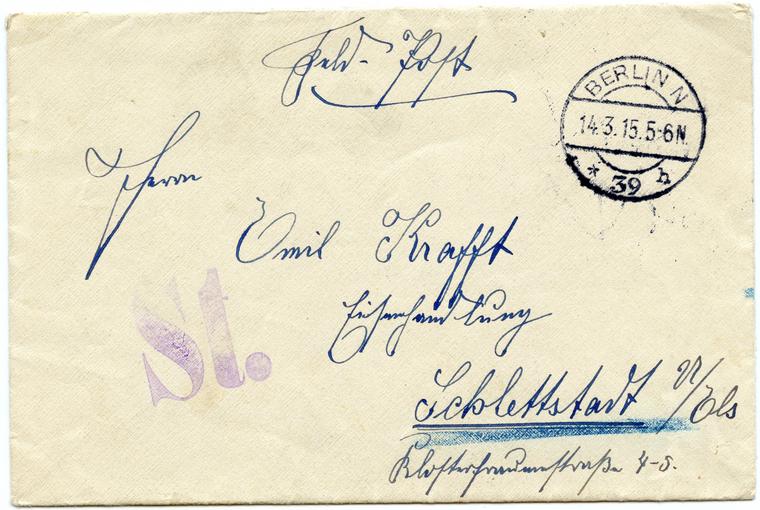 Feld-Post
BERLIN N
14.3.15.5-6N.
* 39 h
Herrn
Emil Krafft
Eisenhandlung
St.
Schlettstadt U/Els
4-5.